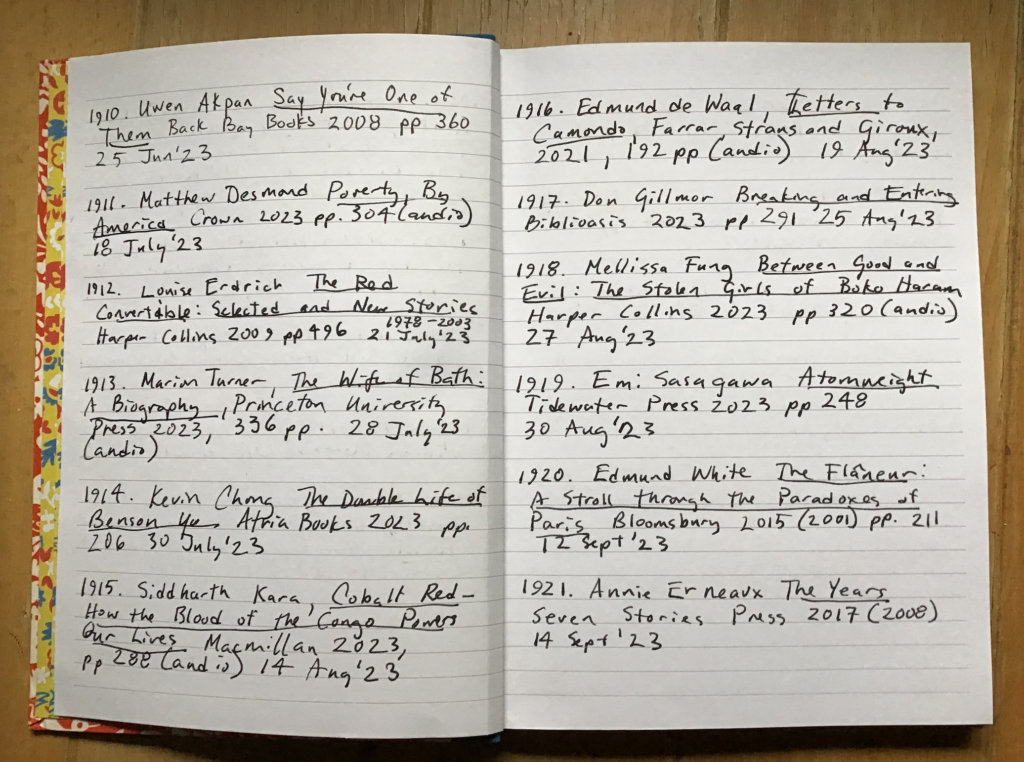 1910. Uwen Akpan Say You're One of
Them Back Bay Books 2008 pp 360
25 Jun '23
1911. Matthew Desmond Poverty, By
America Crown 2023 pp. 304 (audio)
18 July '23
1912. Louise Erdrich The Red
Convertible: Selected and New Stories
1978-2003
Harper Collins 2009 pp 496 21 July '23
1913. Marion Turner, The Wife of Bath:
A Biography, Princeton University
Press 2023, 336 pp. 28 July '23
(audio)
1914. Kevin Chong The Double Life of
Benson Yu Atria Books 2023 pp.
206 30 July '23
1915. Siddharth Kara, Cobalt Red-
How the Blood of the Congo Powers
Our Lives Macmillan 2023,
pp 288 (audio) 14 Aug '23
1916. Edmund de Waal, Letters to
Camondo, Farrar, Straus and Giroux,
2021, 192 pp (audio) 19 Aug '23
1917. Don Gillmor Breaking and Entering
Biblioasis 2023 pp 291 25 Aug '23
1918. Mellissa Fung Between Good and
Evil: The Stolen Girls of Boko Haram
Harper Collins 2023 pp 320 (audio)
27 Aug '23
1919. Emi Sasagawa Atomweight
Tidewater Press 2023 pp 248
30 Aug '23
1920. Edmund White The Flâneur:
A Stroll through the Paradoxes of
Paris Bloomsbury 2015 (2001) pp. 211
12 Sept '23
1921. Annie Erneaux The Years
Seven Stories Press 2017 (2008)
14 Sept '23